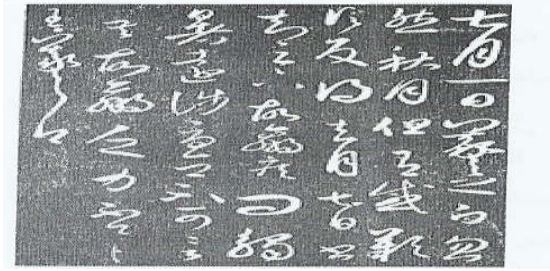 七月一日羲之白忽
然秋月但有感歎
信反得去月七日書
知足下故羸疾問觸
暑遠涉憂卿不可言
吾故羸乏力
王羲之白